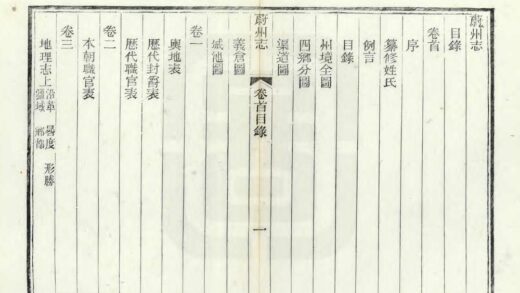 蔚州志
目錄
卷首
序
纂修姓氏
例言
目錄
州境全圖
四鄉分圖
渠道圖
蔚州志 卷首目錄 一
義倉圖
城池圖
卷一
輿地表
歷代封爵表
歷代職官表
卷二
本朝職官表
卷三
地理志上 沿革 晷度 形勝
疆域